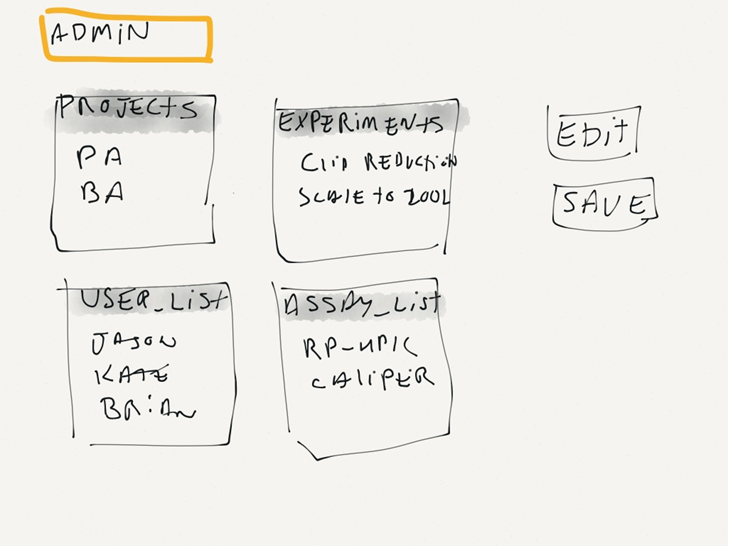 ADMIN
PROJECTS
PA
BA
EXPERIMENTS
CLIP REDUCTION
SCALE to 200L
EDit
SAVE
USER_LiSt
JASON
KATE
BRiAN
ASSAY_List
RP-UPLC
CALIPER